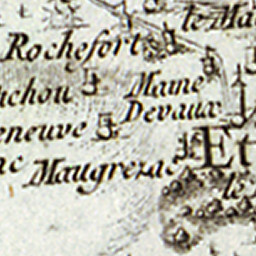 le Ma
Rochefort
Maine
chou
Devaux
eneuve
Et
Maugrezac
le